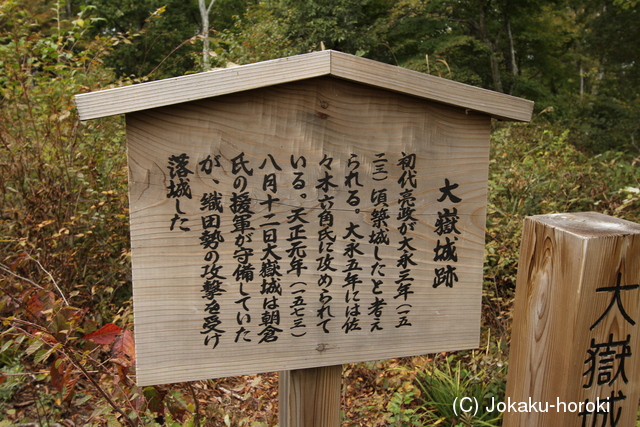 大嶽城跡
初代亮政が大永三年（一五
二三）頃築城したと考え
られる。大永五年には佐
々木六角氏に攻められて
いる。天正元年（一五七三）
八月十二日大嶽城は朝倉
氏の援軍が守備していた
が、織田勢の攻撃を受け
落城した
大嶽城
(C) Jokaku-horoki